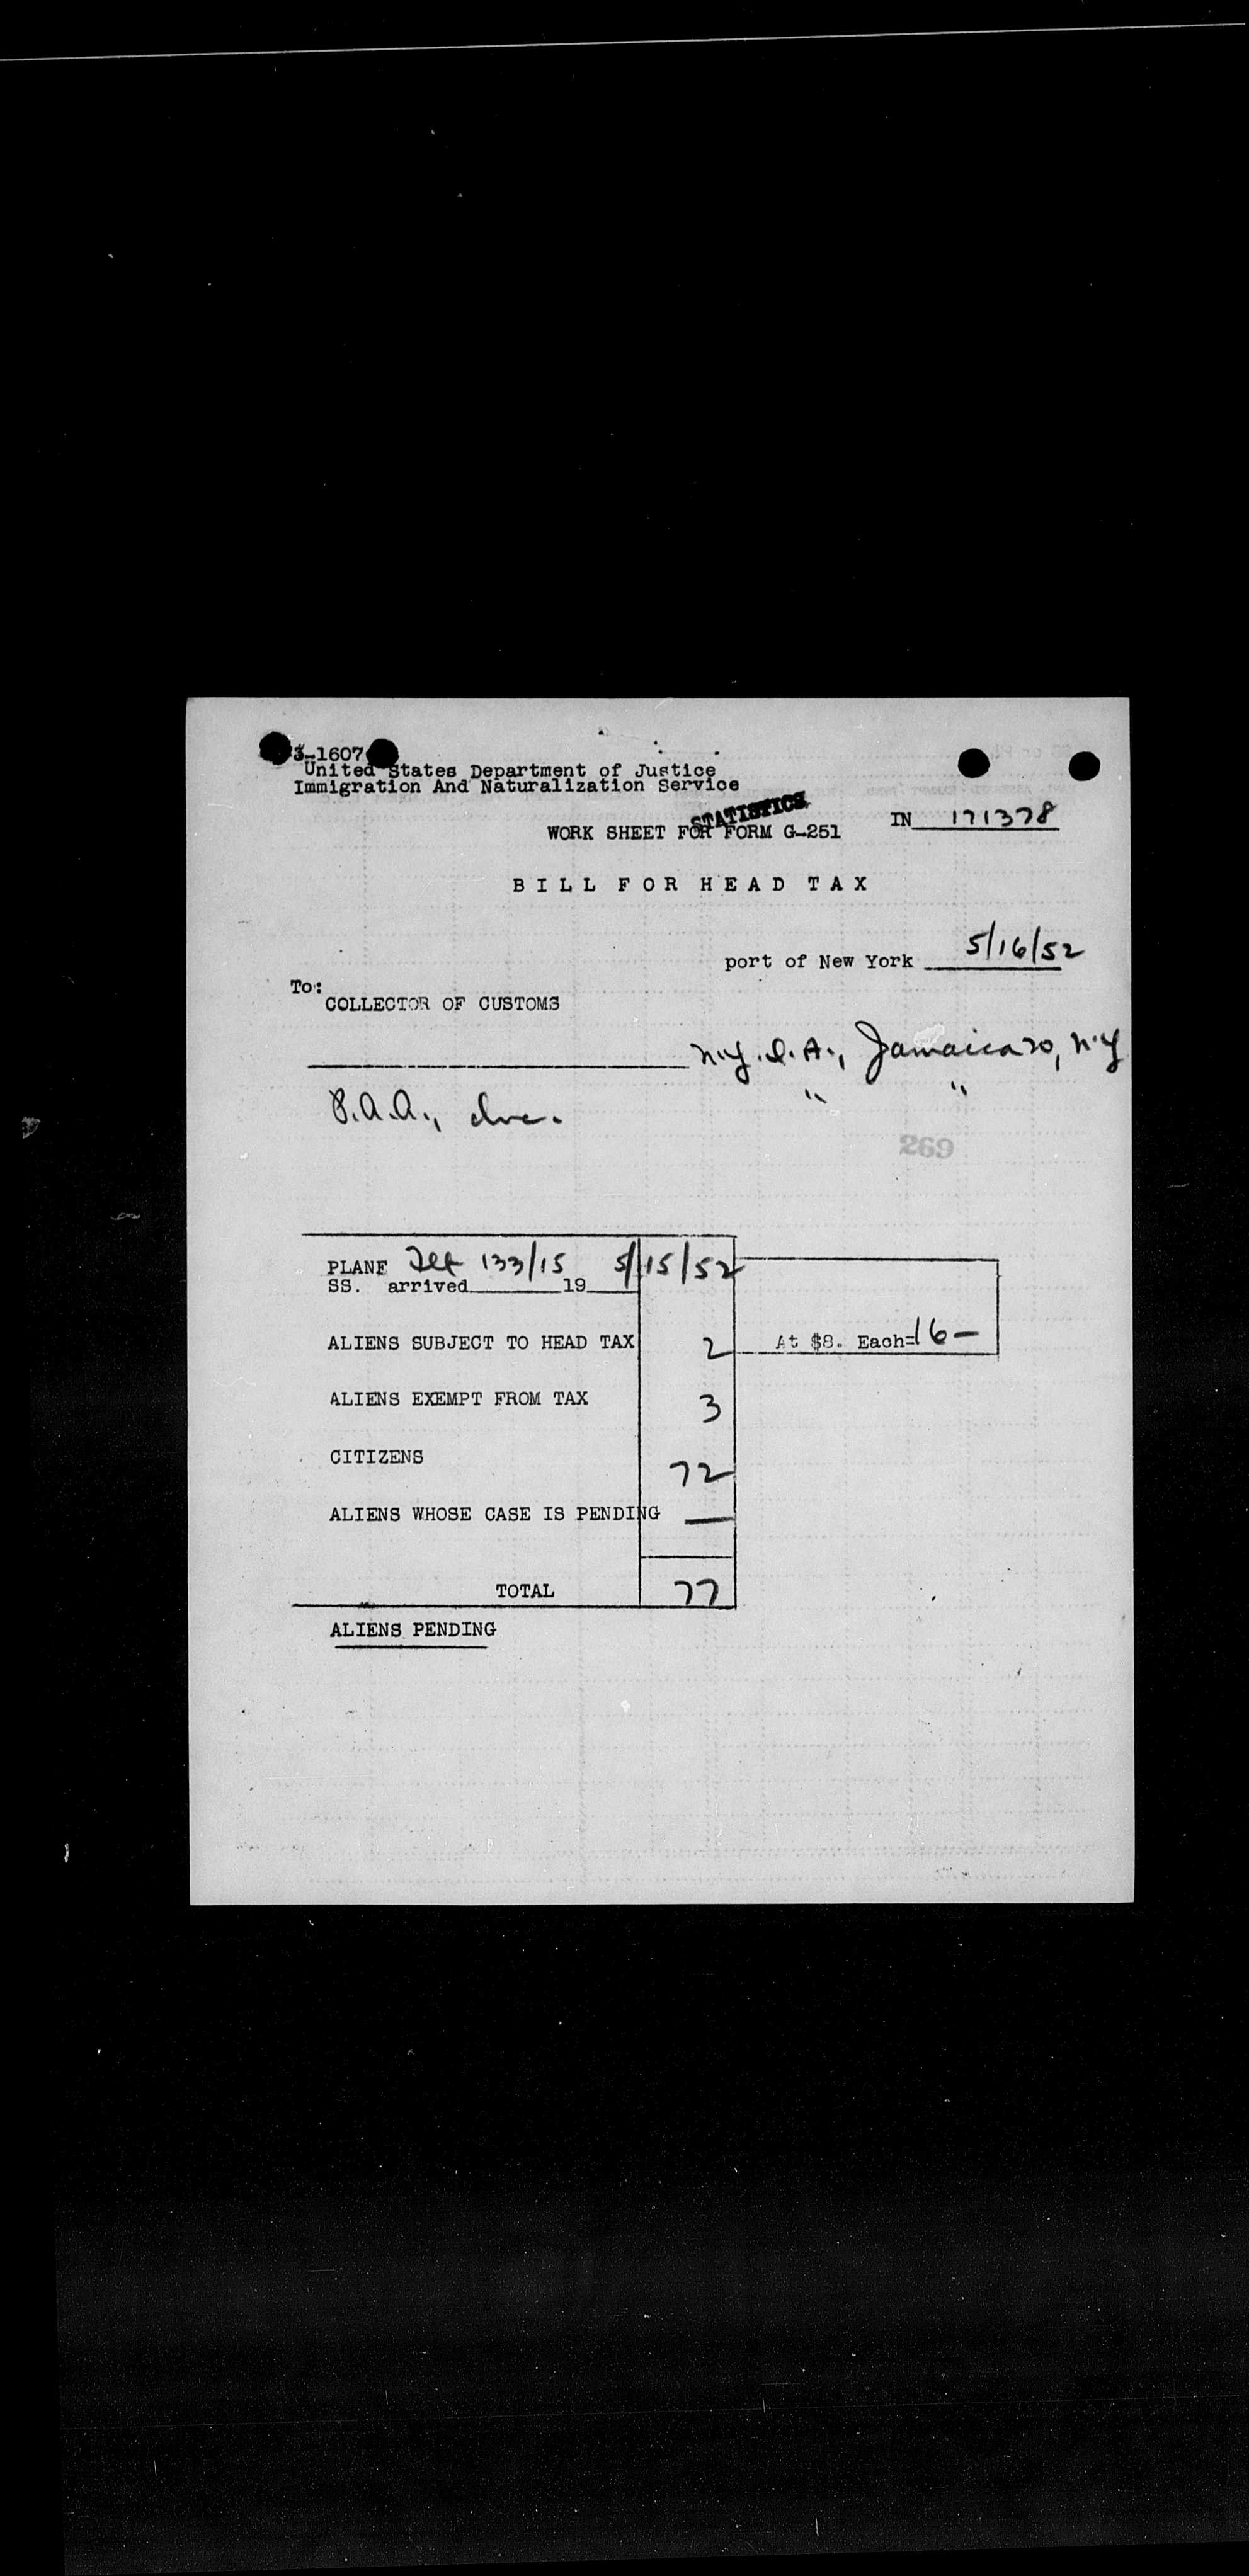 3-1607
United States Department of Justice
Immigration And Naturalization Service
STATISTICS
WORK SHEET FOR FORM G-251 IN 171378
BILL FOR HEAD TAX
port of New York 5/16/52
To:
COLLECTOR OF CUSTOMS
N.Y.I.A., Jamaica 30, N.Y
P.A.A., Inc. " "
269
PLANE Flt 133/15 5/15/52
SS. arrived 19
ALIENS SUBJECT TO HEAD TAX 2 At $8. Each=16-
ALIENS EXEMPT FROM TAX 3
CITIZENS 72
ALIENS WHOSE CASE IS PENDING —
TOTAL 77
ALIENS PENDING